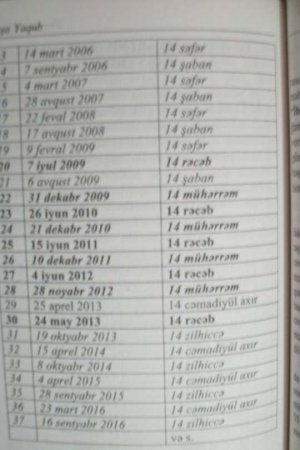 Yaqub
3 14 mart 2006 14 səfər
4 7 sentyabr 2006 14 şaban
5 4 mart 2007 14 səfər
6 28 avqust 2007 14 şaban
22 feval 2008 14 səfər
8 17 avqust 2008 14 şaban
9 9 fevral 2009 14 səfər
20 7 iyul 2009 14 rəcəb
21 6 avqust 2009 14 şaban
22 31 dekabr 2009 14 mühərrəm
23 26 iyun 2010 14 rəcəb
24 21 dekabr 2010 14 mühərrəm
25 15 iyun 2011 14 rəcəb
26 10 dekabr 2011 14 mühərrəm
27 4 iyun 2012 14 rəcəb
28 28 noyabr 2012 14 mühərrəm
29 25 aprel 2013 14 cəmadiyül axır
30 24 may 2013 14 rəcəb
31 19 oktyabr 2013 14 zilhiccə
32 15 aprel 2014 14 cəmadiyül axır
33 8 oktyabr 2014 14 zilhiccə
34 4 aprel 2015 14 cəmadiyül axır
35 28 sentyabr 2015 14 zilhiccə
36 23 mart 2016 14 cəmadiyül axır
37 16 sentyabr 2016 14 zilhiccə
və s.